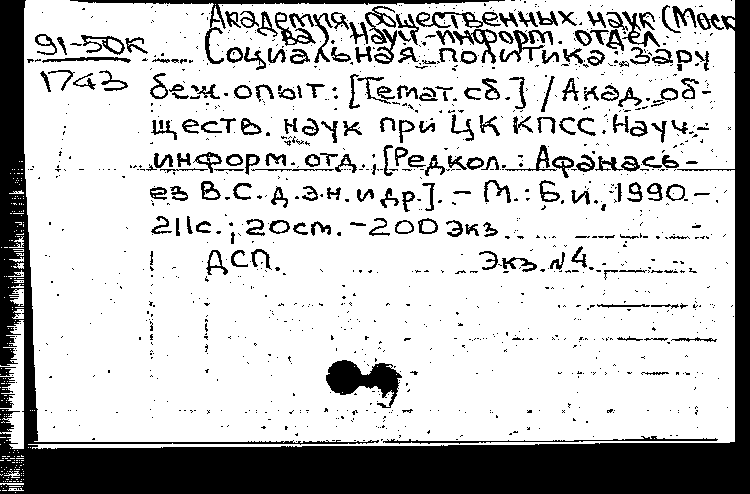 Академия общественных наук (Моск
ва). Науч.-информ. отдел
91-50К
Социальная политика: зару
1743
беж. опыт: [Темат. сб.] / Акад. об-
ществ. наук при ЦК КПСС. Науч.-
информ. отд.; [Редкол.: Афанась-
ев В.С. д.э.н. и др.]. - М.: Б.и., 1990.-
211с.; 20см. - 200 экз
ДСП. Экз. №4